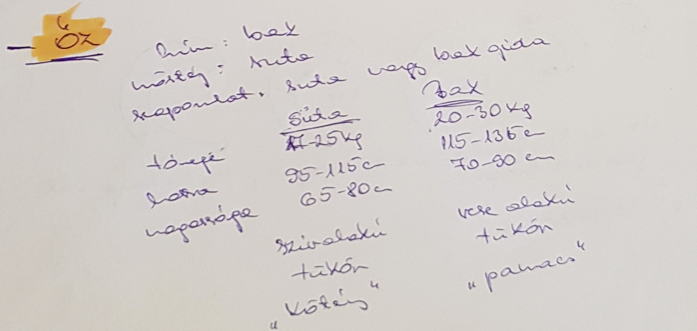 – Őz
hím: bak
nőstény: suta
szaporulat: suta vagy bak gida
Suta Bak
17-25kg 20-30kg
tömege
hossza 95-115cm 115-135cm
magassága 65-80cm 70-90 cm
szívalakú vese alakú
tükör tükör
"kötény" "pamacs"